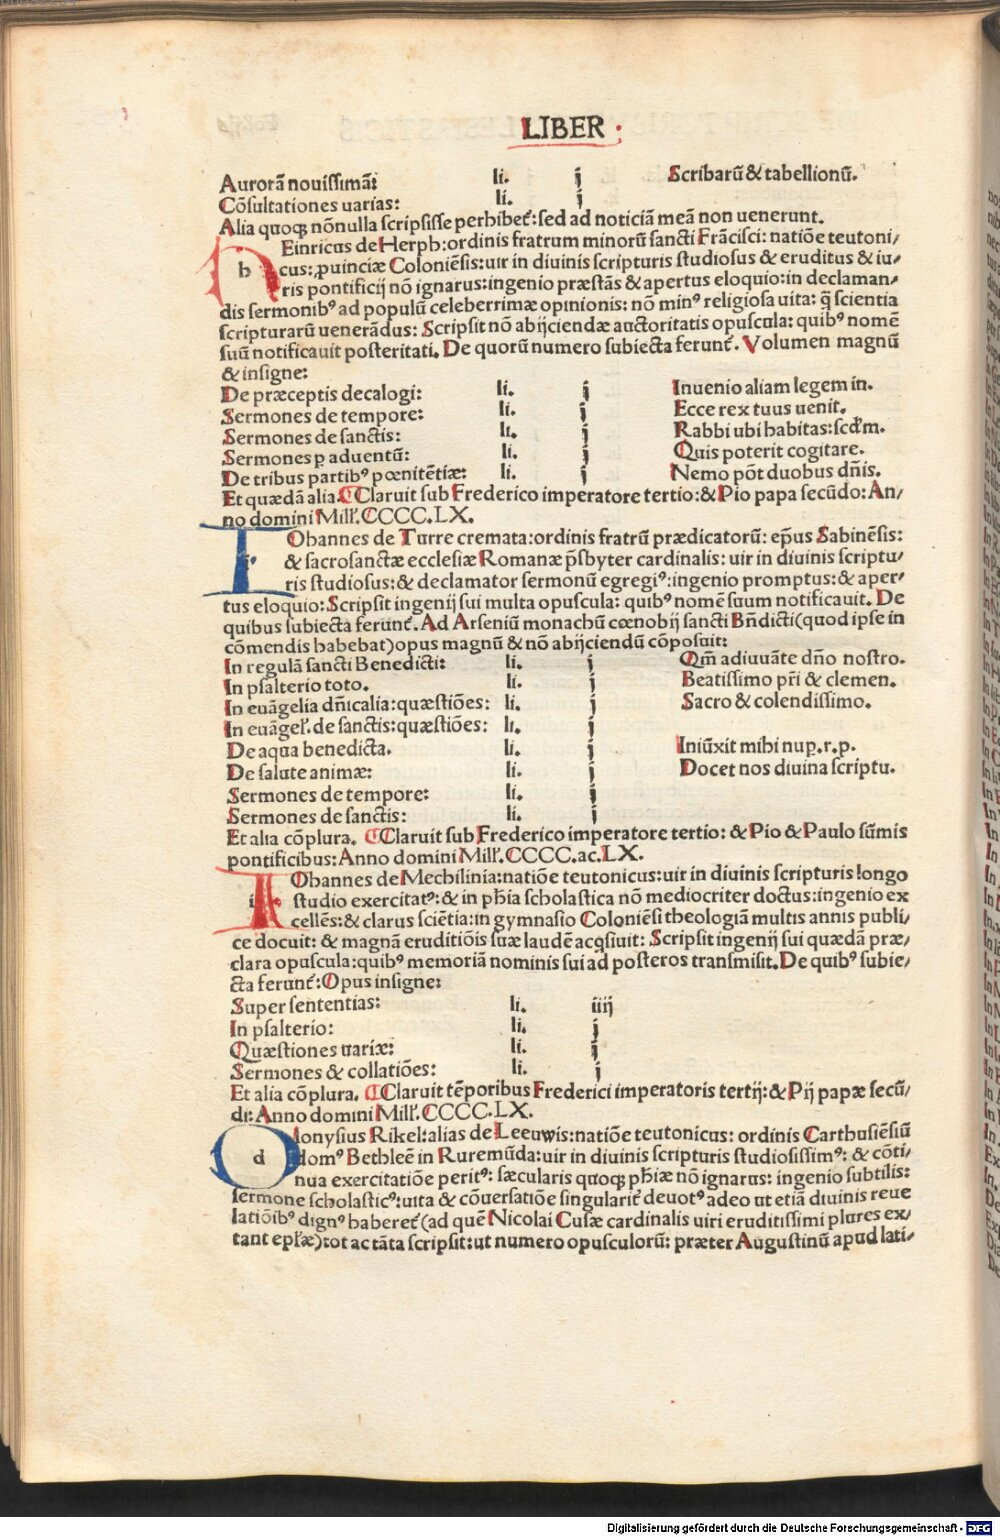 LIBER
Aurorā nouissimā: li. j Scribarū & tabellionū.
Cōsultationes uarias: li. j
Alia quoqꝫ nōnulla scripsisse perhibet᷑: sed ad noticiā meā non uenerunt.
h Einricus de Herph: ordinis fratrum minorū sancti Frācisci: natiōe teutoni/
cus: ꝓuinciæ Coloniēsis: uir in diuinis scripturis studiosus & eruditus & iu/
ris pontificij nō ignarus: ingenio præstās & apertus eloquio: in declaman/
dis sermonibꝰ ad populū celeberrimæ opinionis: nō minꝰ religiosa uita: q̄ scientia
scripturarū uenerādus: Scripsit nō abijciendæ auctoritatis opuscula: quibꝰ nomē
suū notificauit posteritati. De quorū numero subiecta ferunt᷑. Volumen magnū
& insigne:
De præceptis decalogi: li. j Inuenio aliam legem in.
Sermones de tempore: li. j Ecce rex tuus uenit.
Sermones de sanctis: li. j Rabbi ubi habitas: scd'm.
Sermones ꝑ aduentū: li. j Quis poterit cogitare.
De tribus partibꝰ pœnitētiæ: li. j Nemo pōt duobus dn̄is.
Et quædā alia. ⸿ Claruit sub Frederico imperatore tertio: & Pio papa secūdo: An/
no domini Mill'. CCCC. LX.
I Ohannes de Turre cremata: ordinis fratrū prædicatorū: ep̄us Sabinēsis:
& sacrosanctæ ecclesiæ Romanæ p̄sbyter cardinalis: uir in diuinis scriptu/
ris studiosus: & declamator sermonū egregiꝰ: ingenio promptus: & aper/
tus eloquio: Scripsit ingenij sui multa opuscula: quibꝰ nomē suum notificauit. De
quibus subiecta ferunt᷑. Ad Arseniū monachū cœnobij sancti Bn̄dicti (quod ipse in
cōmendis habebat) opus magnū & nō abijciendū cōposuit:
In regulā sancti Benedicti: li. j Qm̄ adiuuāte dn̄o nostro.
In psalterio toto. li. j Beatissimo pr̄i & clemen.
In euāgelia dn̄icalia: quæstiōes: li. j Sacro & colendissimo.
In euāgel'. de sanctis: quæstiōes: li. j
De aqua benedicta. li. j Iniūxit mihi nuꝑ. r. p.
De salute animæ: li. j Docet nos diuina scriptu.
Sermones de tempore: li. j
Sermones de sanctis: li. j
Et alia cōplura. ⸿ Claruit sub Frederico imperatore tertio: & Pio & Paulo sūmis
pontificibus: Anno domini Mill'. CCCC. ac. LX.
I Ohannes de Mechilinia: natiōe teutonicus: uir in diuinis scripturis longo
studio exercitatꝰ: & in ph̄ia scholastica nō mediocriter doctus: ingenio ex
cellēs: & clarus sciētia: in gymnasio Coloniēsi theologiā multis annis publi/
ce docuit: & magnā eruditiōis suæ laudē acq̄siuit: Scripsit ingenij sui quædā præ/
clara opuscula: quibꝰ memoriā nominis sui ad posteros transmisit. De quibꝰ subie/
cta ferunt᷑: Opus insigne:
Super sententias: li. iiij
In psalterio: li. j
Quæstiones uariæ: li. j
Sermones & collatiōes: li. j
Et alia cōplura. ⸿ Claruit tēporibus Frederici imperatoris tertij: & Pij papæ secū/
di: Anno domini Mill'. CCCC. LX.
d Ionysius Rikel: alias de Leeuwis: natiōe teutonicus: ordinis Carthusiēsiū
domꝰ Bethleē in Ruremūda: uir in diuinis scripturis studiosissimꝰ: & cōti/
nua exercitatiōe peritꝰ: sæcularis quoqꝫ ph̄iæ nō ignarus: ingenio subtilis:
sermone scholasticꝰ: uita & cōuersatiōe singularit᷑ deuotꝰ adeo ut etiā diuinis reue
latiōibꝰ dignꝰ haberet᷑ (ad quē Nicolai Cusæ cardinalis uiri eruditissimi plures ex/
tant epl'æ) tot ac tāta scripsit: ut numero opusculorū: præter Augustinū apud lati/
Digitalisierung gefördert durch die Deutsche Forschungsgemeinschaft - DFG